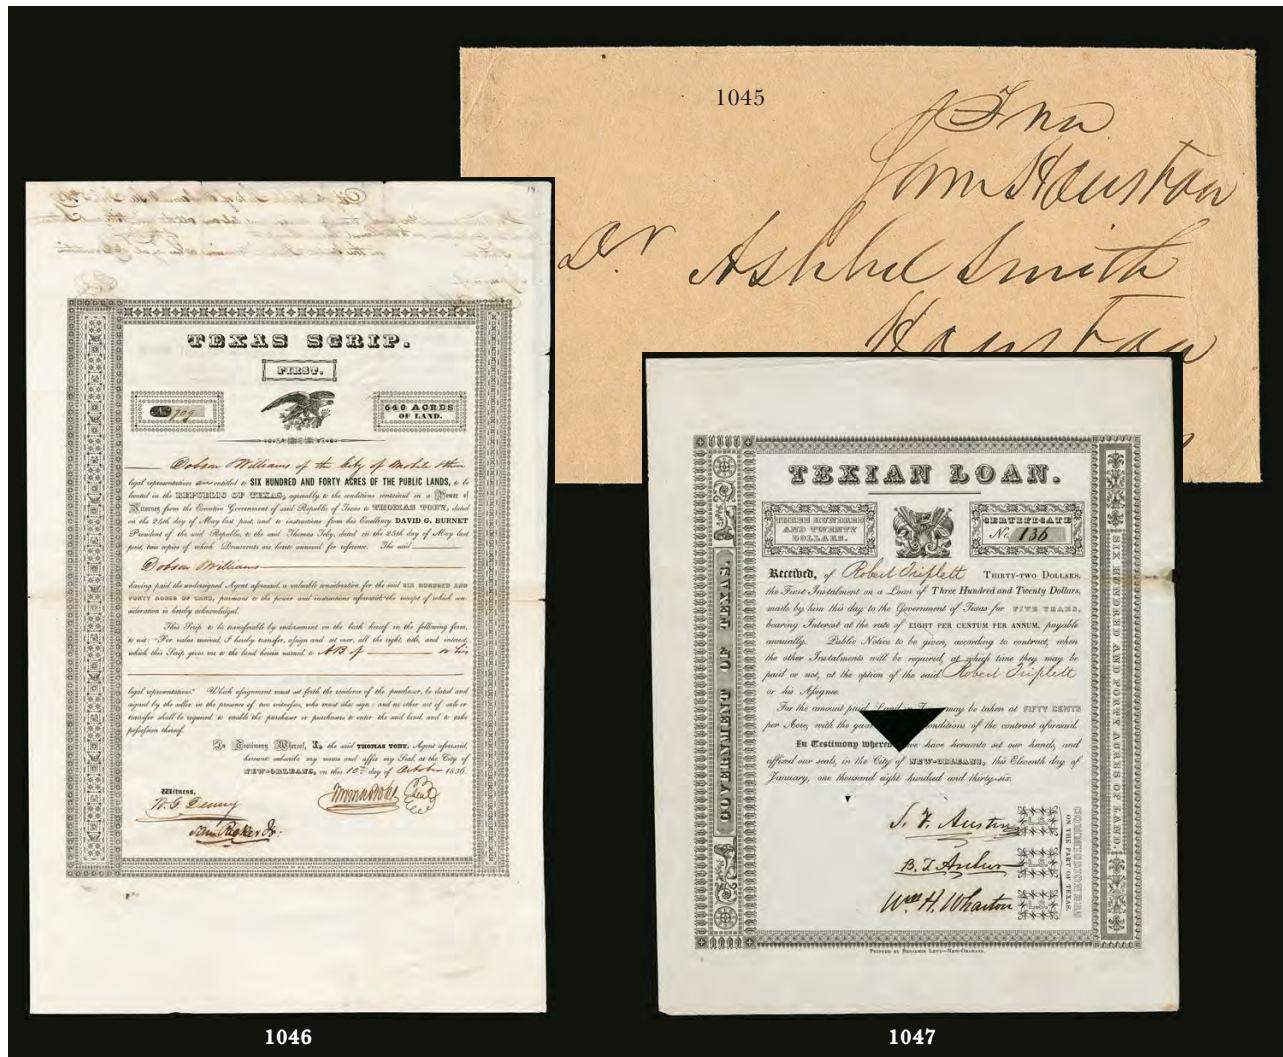 1045
Fna
Sam Houston
Dr Ashbel Smith
Houston
19
TEXAS SCRIP.
FIRST.
No 709
640 ACRES
OF LAND.
Dobson Williams of the City of Mobile
legal representatives are entitled to SIX HUNDRED AND FORTY ACRES OF THE PUBLIC LANDS, to be
located in the REPUBLIC OF TEXAS, agreeably to the conditions contained in a Power of
Attorney from the Executive Government of said Republic of Texas to THOMAS TOBY, dated
on the 24th day of May last past, and to instructions from his Excellency DAVID G. BURNET
President of the said Republic, to the said Thomas Toby, dated on the 25th day of May last
past, two copies of which Documents are hereto annexed for reference. The said
Dobson Williams
having paid the undersigned Agent aforesaid, a valuable consideration for the said SIX HUNDRED AND
FORTY ACRES OF LAND, pursuant to the power and instructions aforesaid, the receipt of which con-
sideration is hereby acknowledged.
This Scrip to be transferable by endorsement on the back hereof in the following form,
to wit: "For value received, I hereby transfer, assign and set over, all the right, title, and interest,
which this Scrip gives me to the land herein named, to A B of or his
legal representatives." Which assignment must set forth the residence of the purchaser, be dated and
signed by the seller in the presence of two witnesses, who must also sign: and no other act of sale or
transfer shall be required to enable the purchaser or purchasers to enter the said land, and to take
possession thereof.
In Testimony Whereof, I, the said THOMAS TOBY, Agent aforesaid,
hereunto subscribe my name and affix my Seal, at the City of
NEW-ORLEANS, on this 10th day of October 1836.
Witness,
W. G. Denny
Thomas Toby
1046
TEXIAN LOAN.
THREE HUNDRED
AND TWENTY
DOLLARS.
CERTIFICATE
No. 136
Received, of Robert Triplett THIRTY-TWO DOLLARS,
the First Instalment on a Loan of Three Hundred and Twenty Dollars,
made by him this day to the Government of Texas for FIVE YEARS,
bearing Interest at the rate of EIGHT PER CENTUM PER ANNUM, payable
annually. Public Notice to be given, according to contract, when
the other Instalments will be required, at which time they may be
paid or not, at the option of the said Robert Triplett
or his Assignee.
For the amount paid, Land in Texas may be taken at FIFTY CENTS
per Acre, with the conditions of the contract aforesaid.
In Testimony whereof, we have hereunto set our hands, and
affixed our seals, in the City of NEW-ORLEANS, this Eleventh day of
January, one thousand eight hundred and thirty-six.
S. F. Austin
B. T. Archer
Wm H. Wharton
COMMISSIONERS
ON THE PART OF TEXAS.
GOVERNMENT OF TEXAS.
SIX HUNDRED AND FORTY ACRES OF LAND.
PRINTED BY BENJAMIN LEVY—NEW-ORLEANS.
1047